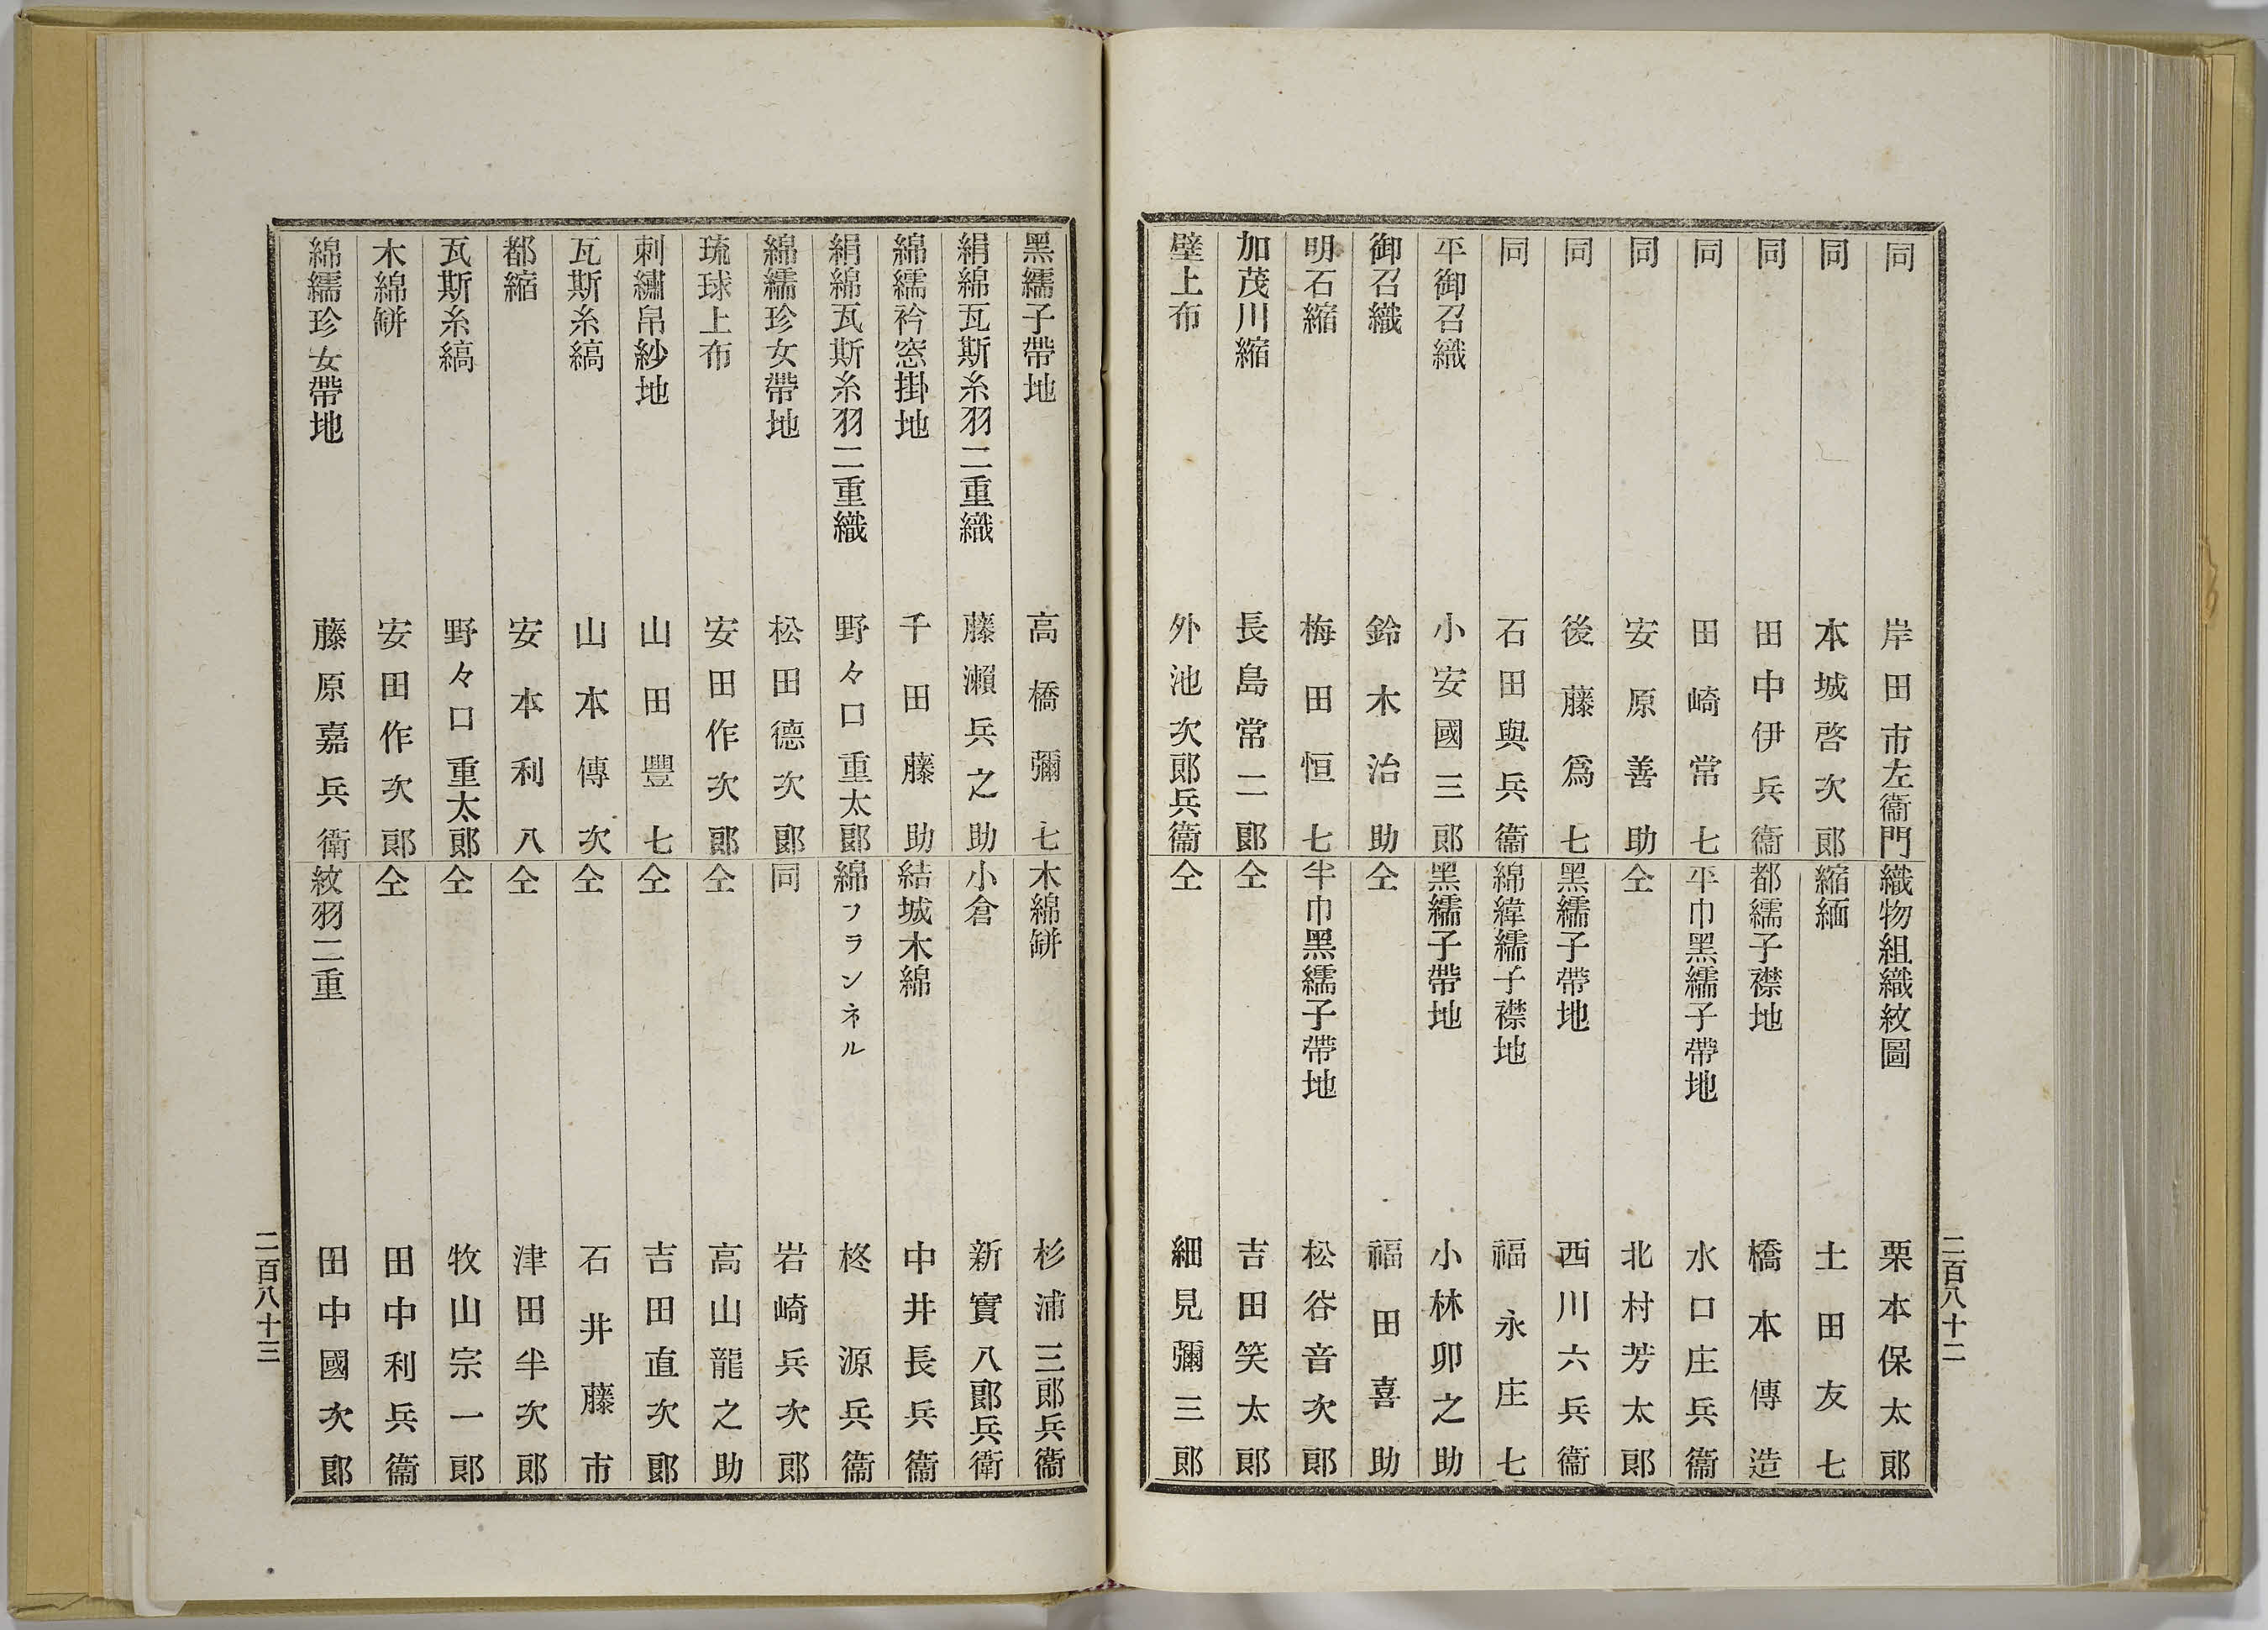 同 岸田市左衞門
同 本城啓次郎
同 田中伊兵衞
同 田崎常七
同 安原善助
同 後藤爲七
同 石田與兵衞
平御召織 小安國三郎
御召織 鈴木治助
明石縮 梅田恒七
加茂川縮 長島常二郎
壁上布 外池次郎兵衞
織物組織紋圖 栗本保太郎
縮緬 土田友七
都繻子襟地 橋本傳造
平巾黑繻子帶地 水口庄兵衞
仝 北村芳太郎
黑繻子帶地 西川六兵衞
綿緯繻子襟地 福永庄七
黑繻子帶地 小林卯之助
仝 福田喜助
半巾黑繻子帶地 松谷音次郎
仝 吉田笑太郎
仝 細見彌三郎
二百八十二
黑繻子帶地 高橋彌七
絹綿瓦斯糸羽二重織 藤瀨兵之助
綿繻衿窓掛地 千田藤助
絹綿瓦斯糸羽二重織 野々口重太郎
綿繻珍女帶地 松田德次郎
琉球上布 安田作次郎
刺繡帛紗地 山田豐七
瓦斯糸縞 山本傳次
都縮 安本利八
瓦斯糸縞 野々口重太郎
木綿缾 安田作次郎
綿繻珍女帶地 藤原嘉兵衞
木綿缾 杉浦三郎兵衞
小倉 新實八郎兵衞
結城木綿 中井長兵衞
綿フランネル 柊源兵衞
同 岩崎兵次郎
仝 高山龍之助
仝 吉田直次郎
仝 石井藤市
仝 津田半次郎
仝 牧山宗一郎
仝 田中利兵衞
紋羽二重 田中國次郎
二百八十三